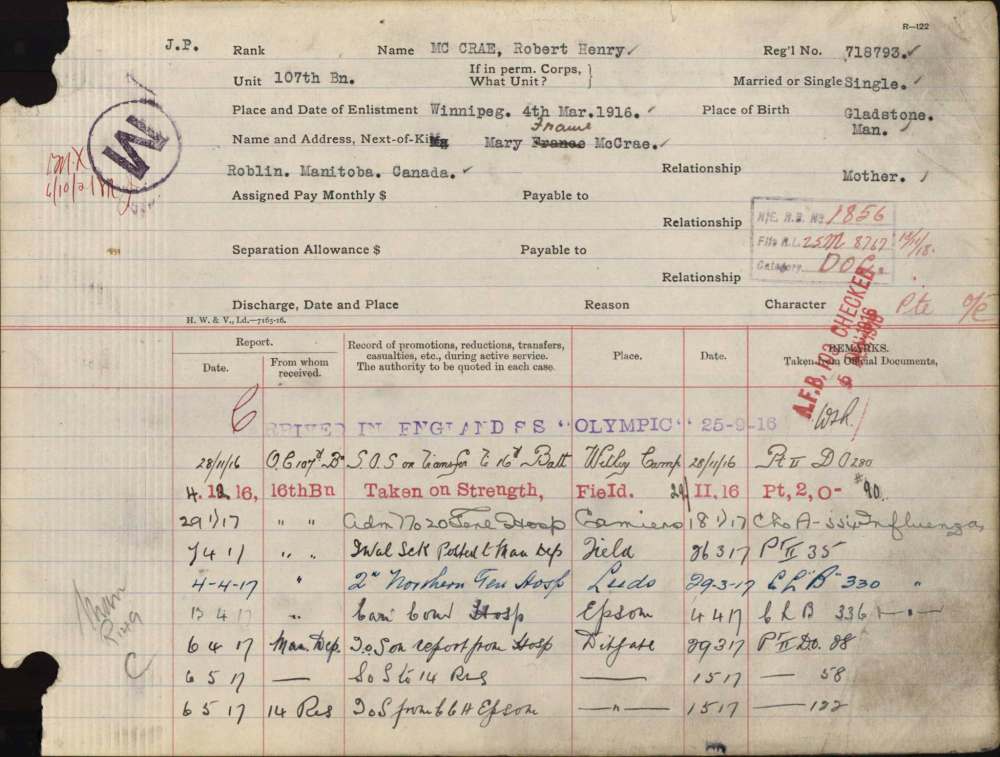 R-122
J.P. Rank Name MC CRAE, Robert Henry. Reg'l No. 718793.
Unit 107th Bn. If in perm. Corps, What Unit? Married or Single Single.
Place and Date of Enlistment Winnipeg. 4th Mar.1916. Place of Birth Gladstone. Man.
Name and Address, Next-of-Kin Mary France McCrae.
Roblin. Manitoba. Canada. Relationship Mother.
Assigned Pay Monthly $ Payable to
Relationship
R.L. 25M 8767
Category DOC.
1856
Separation Allowance $ Payable to
Relationship
Discharge, Date and Place Reason Character Pte
H. W. & V., Ld.—7165-16.
M
A.F.B. 103 CHECKED
Report. Record of promotions, reductions, transfers, casualties, etc., during active service. The authority to be quoted in each case. Place. Date. REMARKS. Taken from Official Documents,
Date. From whom received.
IN ENGLAND SS "OLYMPIC" 25-9-16
28/11/16 O.C 107th Bn S.O.S on Transfer to 16th Batt Witley Camp 28/11/16 Pt II D O 280
4. 12 16, 16thBn Taken on Strength, Field. 29/II,16 Pt,2,O- #90
29 1/17 " " adm No 20 Gene Hosp Camiers 18 1/17 Influenza
" " Inval Sck Posted to Man Dep Field 26 3 17 Pt II 35
4-4-17 " 2nd Northern Gen Hosp Leeds 29-3-17 C L "B" 330 "
13 4 17 " Can Conv Hosp Epsom 4 4 17 C L B 336
6 4 17 Man. Dep. T.o.S on report from Hosp Ditgate 29 3 17 Pt II D.o. 28
6 5 17 — S o S to 14 Res — 1 5 17 — 58
6 5 17 14 Res T o S from C C H Epsom — " — 1 5 17 — 122